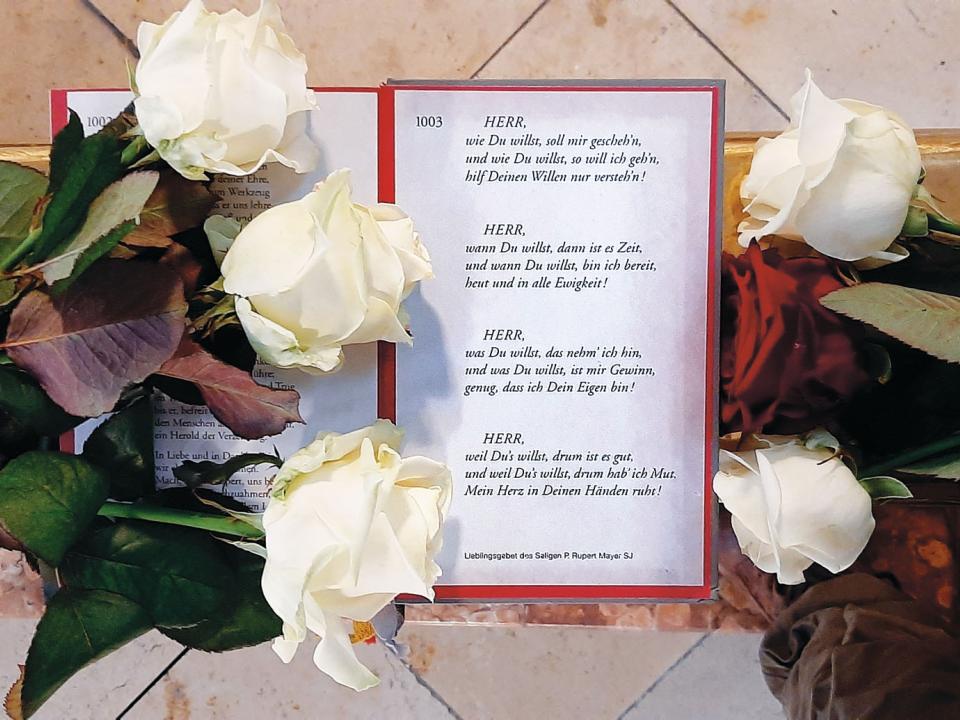 1002
deiner Ehre,
um Werkzeug
s er uns lehre
und
ühre;
d Trug
bis er, befreit
den Menschen
ein Herold der
In Liebe und in
wir
uns
1003
HERR,
wie Du willst, soll mir gescheh'n,
und wie Du willst, so will ich geh'n,
hilf Deinen Willen nur versteh'n!
HERR,
wann Du willst, dann ist es Zeit,
und wann Du willst, bin ich bereit,
heut und in alle Ewigkeit!
HERR,
was Du willst, das nehm' ich hin,
und was Du willst, ist mir Gewinn,
genug, dass ich Dein Eigen bin!
HERR,
weil Du's willst, drum ist es gut,
und weil Du's willst, drum hab' ich Mut.
Mein Herz in Deinen Händen ruht!
Lieblingsgebet des Seligen P. Rupert Mayer SJ